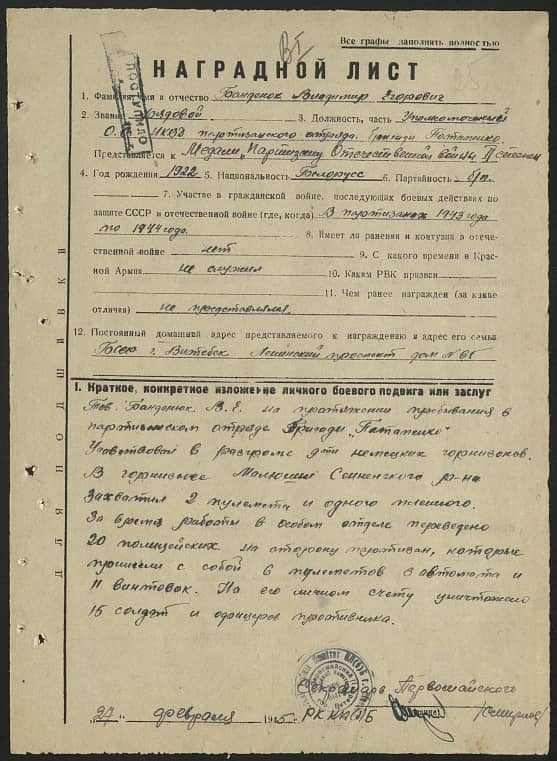 Все графы заполнять полностью
ВI
25
ПОСТУПИЛО
НАГРАДНОЙ ЛИСТ
1. Фамилия, имя и отчество Банденок Владимир Егорович
2. Звание рядовой 3. Должность, часть Уполномоченный
О.О. НКВД партизанского отряда бригады Потапенко.
Представляется к Медали „Партизану Отечественной войны" II степени
4. Год рождения 1922 5. Национальность Белорусс 6. Партийность б/п.
7. Участие в гражданской войне, последующих боевых действиях по
защите СССР и отечественной войне (где, когда) В партизанах 1943 года
по 1944 года. 8. Имеет ли ранения и контузии в отече-
ственной войне нет 9. С какого времени в Крас-
ной Армии не служил 10. Каким РВК призван
11. Чем ранее награжден (за какие
отличия) не представлялся.
12. Постоянный домашний адрес представляемого к награждению и адрес его семьи
г. Витебск Ленинский проспект дом №
I. Краткое, конкретное изложение личного боевого подвига или заслуг
Тов. Банденок В.Е. на протяжении пребывания в
партизанском отряде бригады „Потапенко"
Участвовал в разгроме немецких горнизонов.
В горнизоне Сенненского ра-на
захватил 2 пулемета и одного пленного.
За время работы в особом отделе переведено
20 полицейских на сторону партизан, которые
принесли с собой 6 пулеметов автомата и
11 винтовок. На его личном счету уничтожено
15 солдат и офицеров противника.
Секретарь Первомайского
„27" февраля 1945 г. РК КП(б)Б /Смирнов/
ДЛЯ ПОДШИВКИ